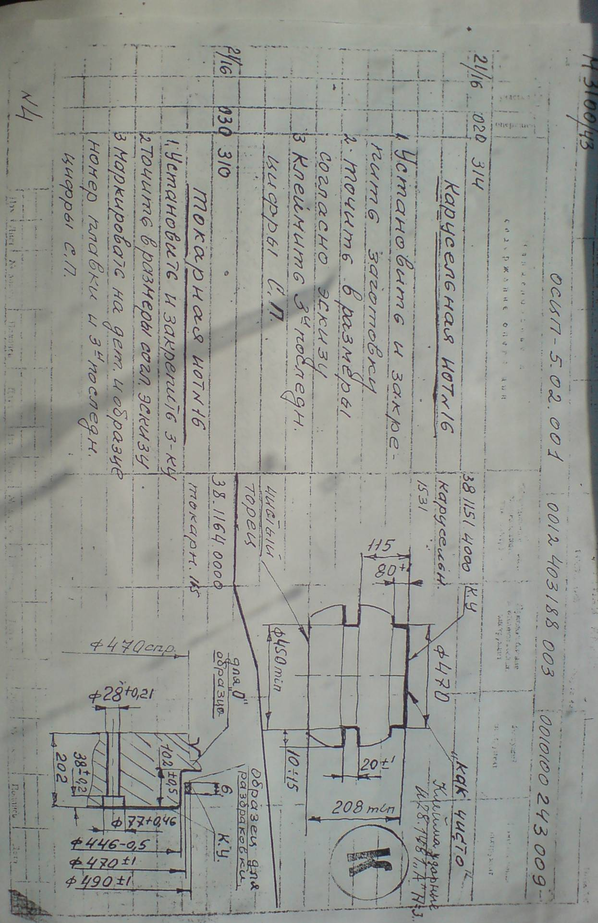 N 3100/43
ОСЦП-5.02.001 0012 403188 003 000100 243 009-
21/16 020 314
Карусельная ИОТN16
1. Установить и закре-
пить заготовку
2 Точить в размеры
согласно эскизу
3 Клеймить 3и последн.
цифры С.П
38 1151 4000
карусельн.
1531
К.У
115
80
ф470
"как чисто"
ф450 min
10±15
20±1
208 min
чистый
торец
К
21/16 030 310
Токарная ИОТN16
1. Установить и закрепить з-ку
2 Точить в размеры согл эскизу
3 Маркировать на дет. и образце
номер плавки и 3и последн.
цифры С.П.
38.1164 0000
токарн. 165
ф470 спр.
для "О"
образце
ф28+0,21
образец для
разбраковки
6
К.У.
38±1,2
202
102±0,5
ф77+0,46
ф446-0,5
ф470±1
ф490±1
N4